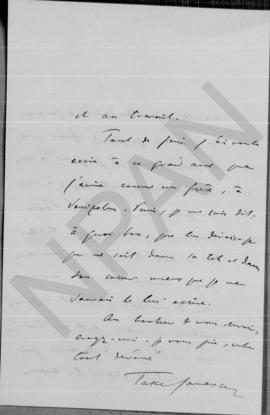 et au travail.
Tant de fois j'ai voulu
écrire à ce grand ami que
j'aime comme un frère, à
Venizelos. Puis, je me suis dit,
à quoi bon, que lui dirais-je
qui ne soit dans sa tête et dans
son cœur mieux que je ne
saurais le lui écrire.
Au bonheur de vous revoir,
croyez-moi, je vous prie, votre
tout dévoué
Take Jonescu
NPAN